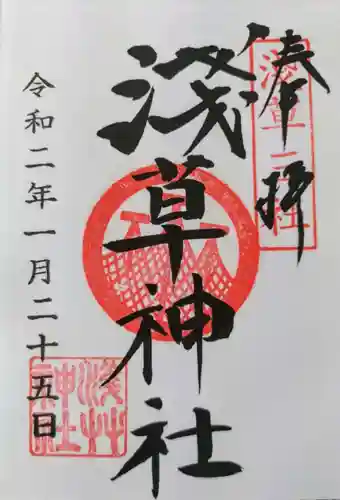 奉拝
浅草三社
淺草神社
令和二年一月二十五日
浅草神社